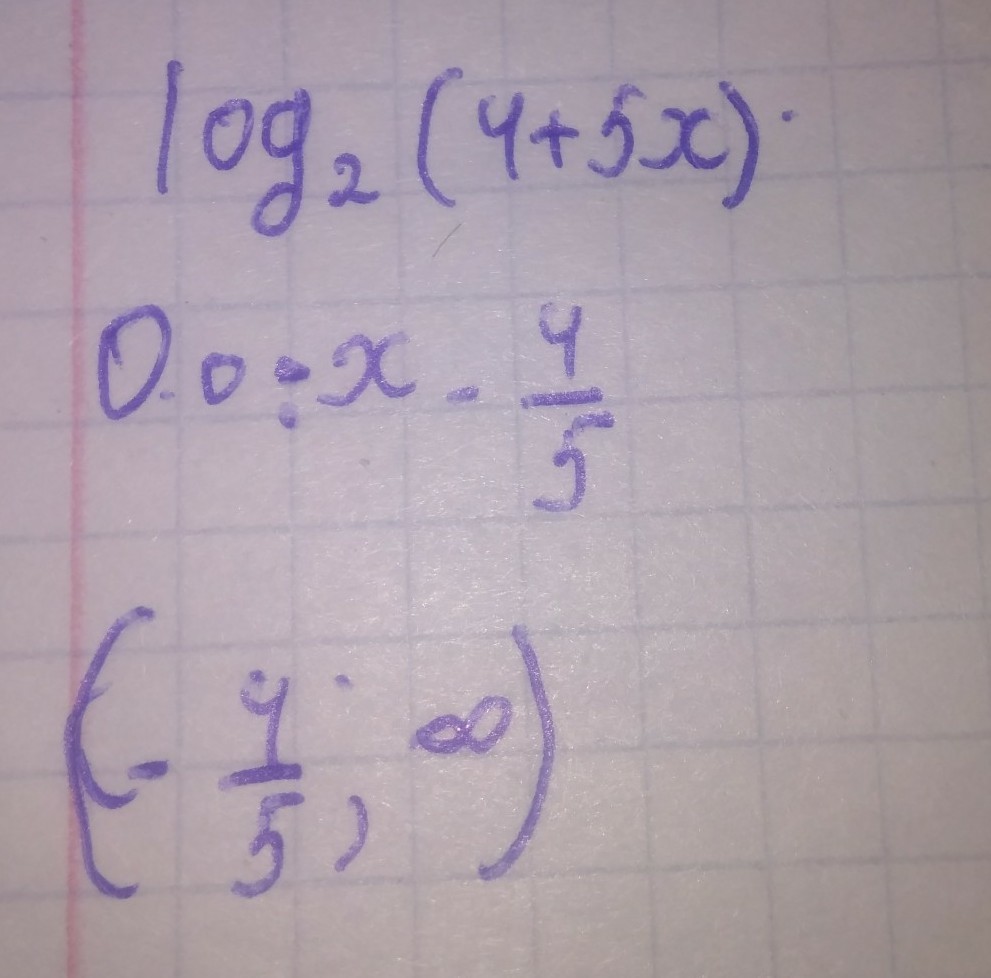 log₂(4+5x)
0.0÷x - 4/5
(-4/5, ∞)